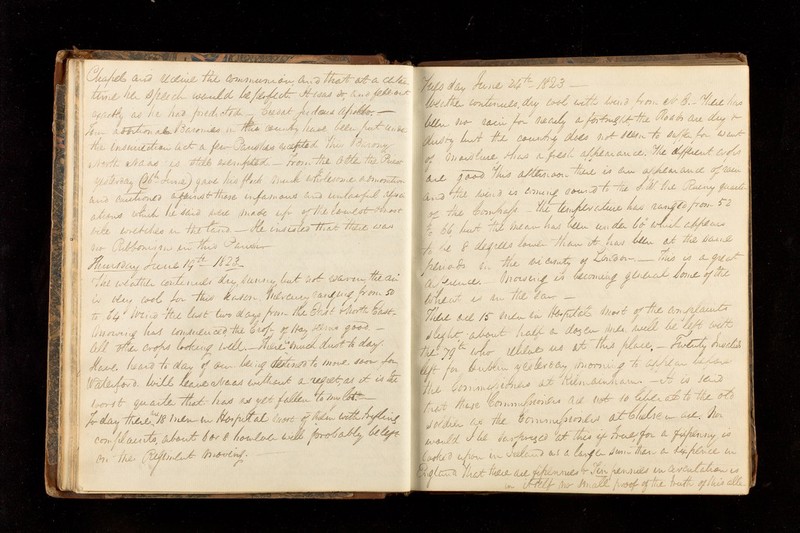 Chapel and receive the Communion and that at a certain
time her speech would be perfect. It was so, and fell out
exactly as he had predicted —
Four additional Baronies in this county have been put under
the Insurrection Act a few Parishes excepted this Barony
North Naas is still exempted — from the altar the Priest
yesterday (24th June) gave his flock much wholesome admonition
and cautioned against those infamous and unlawful
which he said were made up of the lowest & most
vile wretches in the land — He insisted that there was
no Ribbonism in this Parish
Thursday June 19th 1823
The weather continues dry, sunny but not warm, the air
is very cool for this season. Mercury ranging from 50
to 64 Wind the last two days from the East & North East.
Mowing has commenced the Crop of Hay seems good —
All other crops looking well — There is much dust to day.
Have heard to day of our being destined to move soon for
Waterford will leave Naas without a regret, as it is the
worst quarter that has as yet fallen to my lot. —
To day there are 18 men in Hospital most of them with trifling
complaints, about 6 or 8 however will probably be left
on the Regiment moving. —
Tuesday June 24th 1823 —
Weather continues dry, cool with wind from N E. There has
been no rain for nearly a fortnight the Roads are dry &
dusty but the country does not seem to suffer for want
of moisture, has a fresh appearance. The different crops
are good This afternoon there is an appearance of rain
and the wind is coming round to the S.W. the Rainy quarter
of the Compass — The temperature has ranged from 52
to 66 but the mean has been under 60 which appears
to be 8 degrees lower than it has been at the same
periods in the vicinity of London — This is a great
difference — Mowing is becoming general some of the
wheat is in the ear —
There are 15 men in Hospital most of the complaints
slight, about half a dozen men will be left with
the 79th who relieve us at this place. — Twenty Invalids
left for Dublin yesterday morning to appear before
the Commissioners at Kilmainham. — it is said
that these Commissioners are not so liberal to the old
soldier as the Commissioners at Chelsea are, Nor
would I be surprised at this if true for a fipenny is
looked upon in Ireland as a larger sum than a sixpence in
England That there are fipennies & Tenpennies in circulation is
in itself no small proof of the truth of this